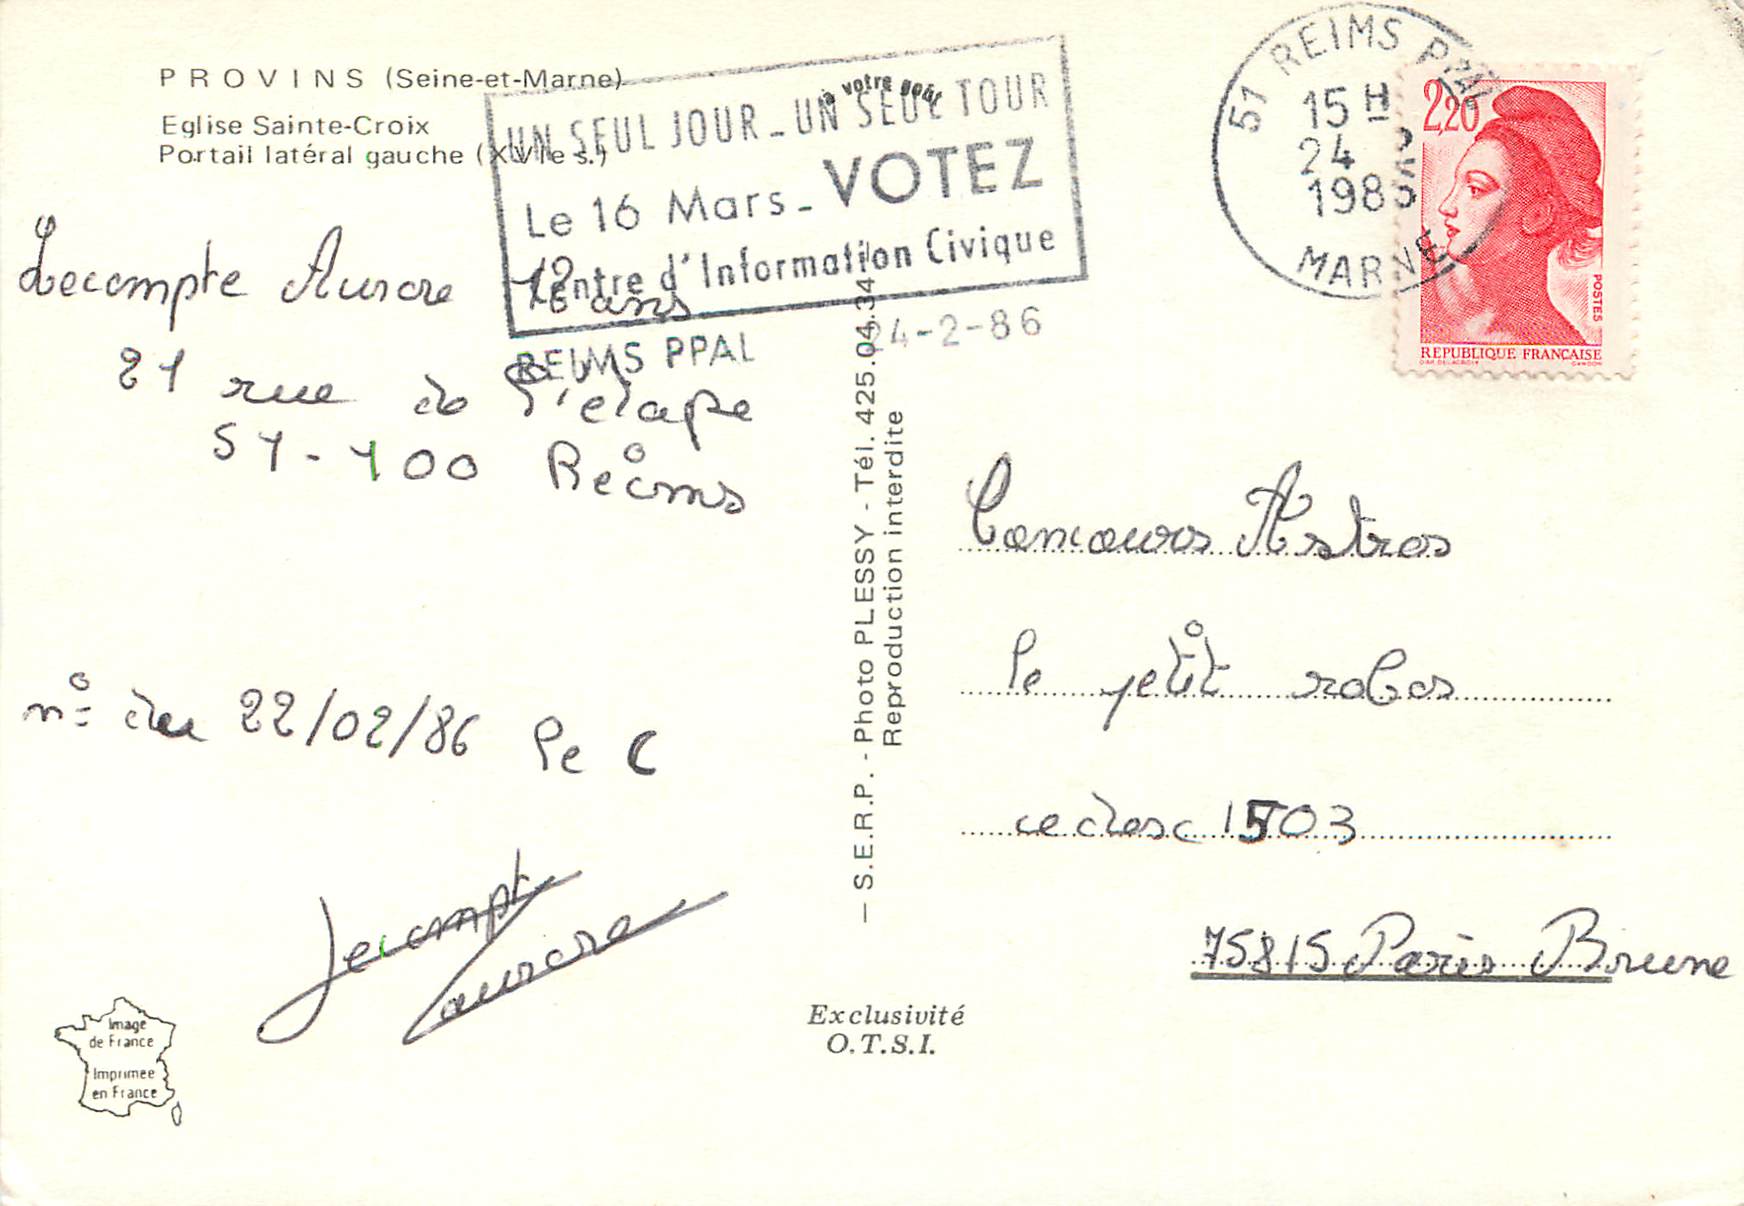 PROVINS (Seine-et-Marne)
Eglise Sainte-Croix
Portail latéral gauche (XVIe s.)
à votre goût
UN SEUL JOUR - UN SEUL TOUR
Le 16 Mars - VOTEZ
Centre d'Information Civique
REIMS PPAL
24-2-86
51 REIMS PPAL
15 H
24 2
1986
MARNE
2,20
POSTES
REPUBLIQUE FRANÇAISE
D'AP. DELACROIX
GANDON
Lecompte Aurore 18 ans
21 rue de l'etape
51-100 Reims
n° du 22/02/86 le C
Lecompte
aurore
— S.E.R.P. - Photo PLESSY - Tél. 425.04.34
Reproduction interdite
Concours Astros
le petit robos
cedesc 1503
75815 Paris Brune
Exclusivité
O.T.S.I.
Image
de France
Imprimée
en France